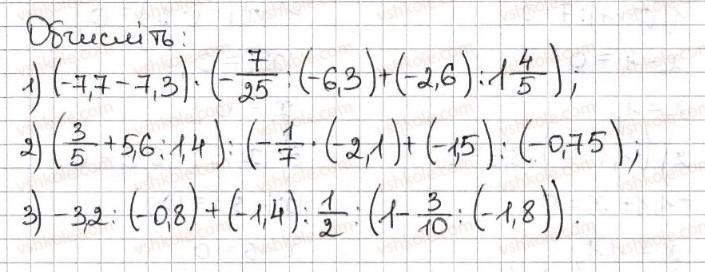 Обчисліть:
1) (-7,7-7,3)·(-7/25:(-6,3)+(-2,6):1 4/5);
2) (3/5+5,6:1,4):(-1/7·(-2,1)+(-1,5):(-0,75);
3) -3,2:(-0,8)+(-1,4):1/2:(1-3/10:(-1,8)).